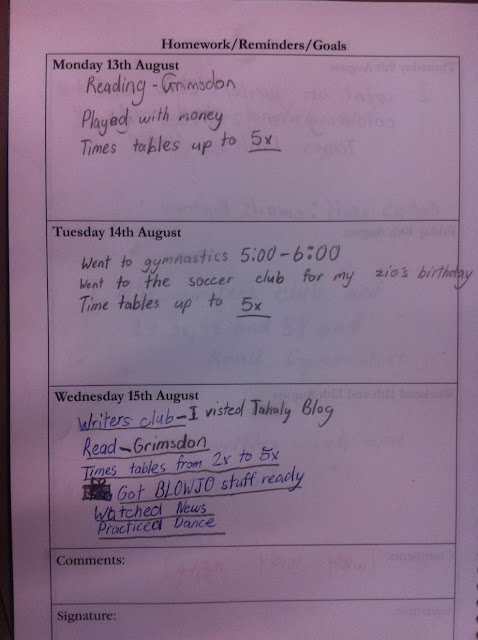 Homework/Reminders/Goals
Monday 13th August
Reading - Grimsdon
Played with money
Times tables up to 5x
Tuesday 14th August
Went to gymnastics 5:00-6:00
Went to the soccer club for my zio's birthday
Time tables up to 5x
Wednesday 15th August
Writers club - I visted Tahaly Blog
Read - Grimsdon
Times tables from 2x to 5x
Got BLOWJO stuff ready
Watched News
Practiced Dance
Comments:
Signature: